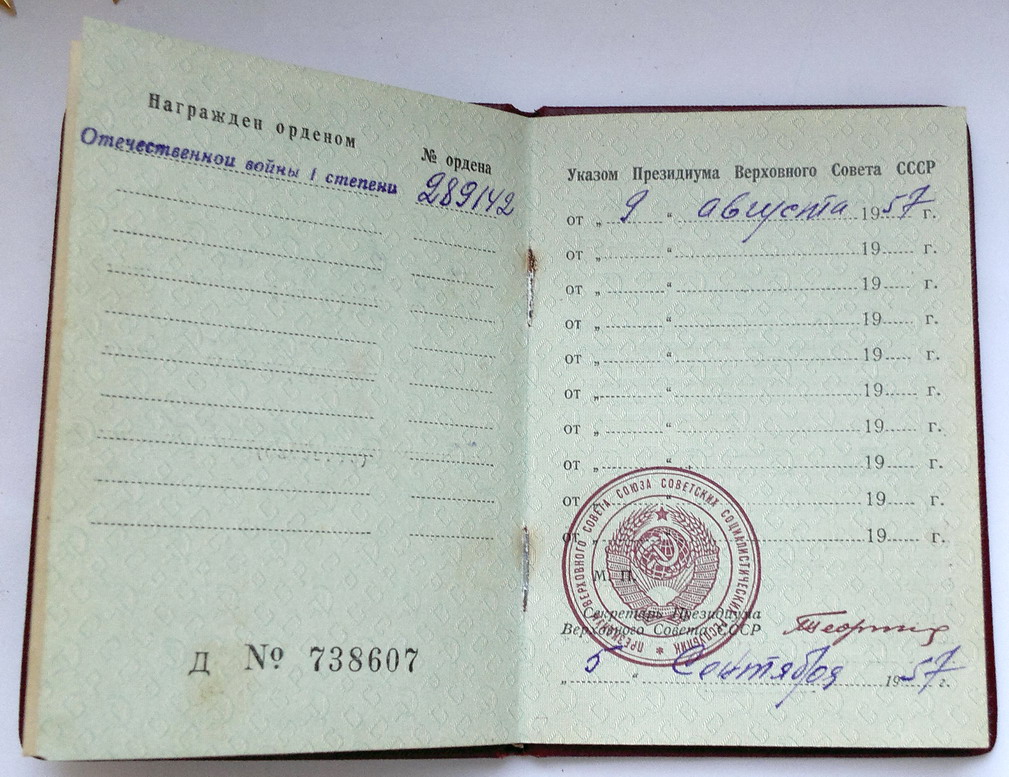 Награжден орденом
№ ордена
Отечественной войны I степени 289142
Д № 738607
Указом Президиума Верховного Совета СССР
от „ 9 “ августа 1957 г.
от „ “ 19 г.
от „ “ 19 г.
от „ “ 19 г.
от „ “ 19 г.
от „ “ 19 г.
от „ “ 19 г.
от „ “ 19 г.
от „ “ 19 г.
от „ “ 19 г.
ПРЕЗИДИУМ ВЕРХОВНОГО СОВЕТА СОЮЗА СОВЕТСКИХ СОЦИАЛИСТИЧЕСКИХ РЕСПУБЛИК
М. П.
Секретарь Президиума
Верховного Совета СССР
„ 5 “ Сентября 1957 г.